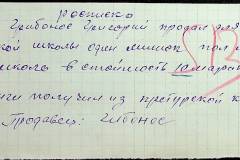 росписка
Грибонос Григорий продал для
кой школы один мешок пол
школы в стоимость 10 марок
ги получил из претурской к
Продавец: Гибонос